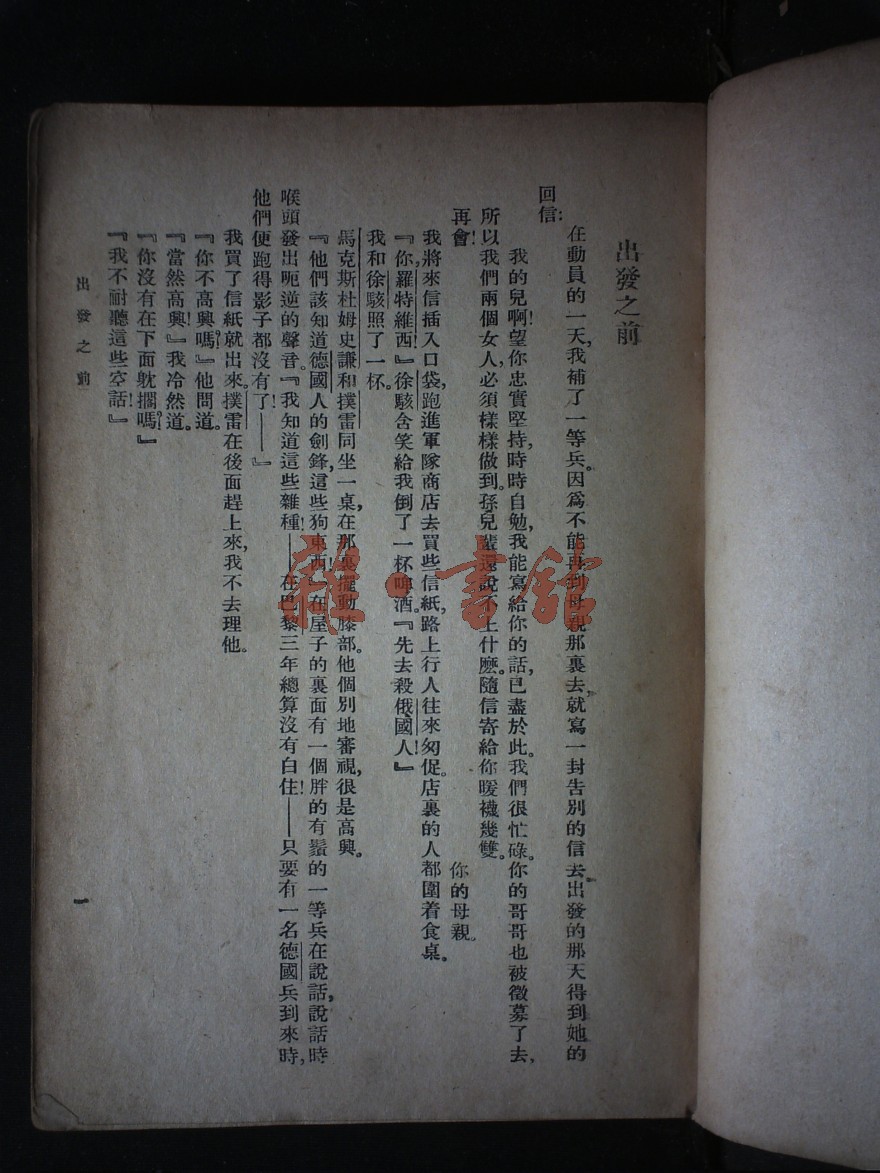 出發之前
在動員的一天，我補了一等兵。因爲不能再到母親那裏去，就寫一封告別的信去，出發的那天得到她的
回信：
我的兒啊！望你忠實堅持，時時自勉，我能寫給你的話，已盡於此。我們很忙碌。你的哥哥也被徵募了去，
所以我們兩個女人，必須樣樣做到。孫兒輩還說不上什麽。隨信寄給你暖襪幾雙。
再會！
你的母親。
我將來信插入口袋，跑進軍隊商店去買些信紙，路上行人往來匆促。店裏的人都圍着食桌。
『你，羅特維西！』徐駭含笑給我倒了一杯啤酒。『先去殺俄國人！』
我和徐駭照了一杯。
馬克斯杜姆史謙和撲雷同坐一桌，在那裏擺動膝部。他個別地審視，很是高興。
『他們該知道德國人的劍鋒，這些狗東西！』在屋子的裏面有一個胖的有鬚的一等兵在說話，說話時
喉頭發出呃逆的聲音。『我知道這些雜種！——在巴黎三年總算沒有白住！——只要有一名德國兵到來時，
他們便跑得影子都沒有了！——』
我買了信紙就出來。撲雷在後面趕上來，我不去理他。
『你不高興嗎？』他問道。
『當然高興！』我冷然道。
『你沒有在下面躭擱嗎？』
『我不耐聽這些空話！』
出發之前
一
雜·書館